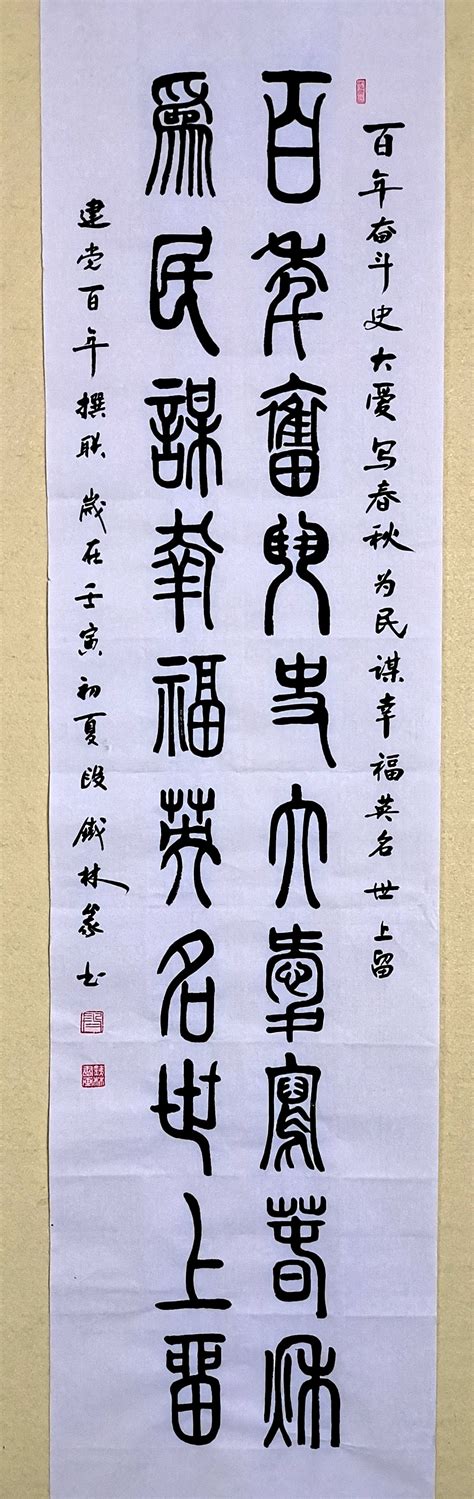 百年奋斗史大爱写春秋为民谋幸福英名世上留
百年奮鬥史大愛寫春秋
為民謀幸福英名世上留
建党百年撰联岁在壬寅初夏段铁林篆书